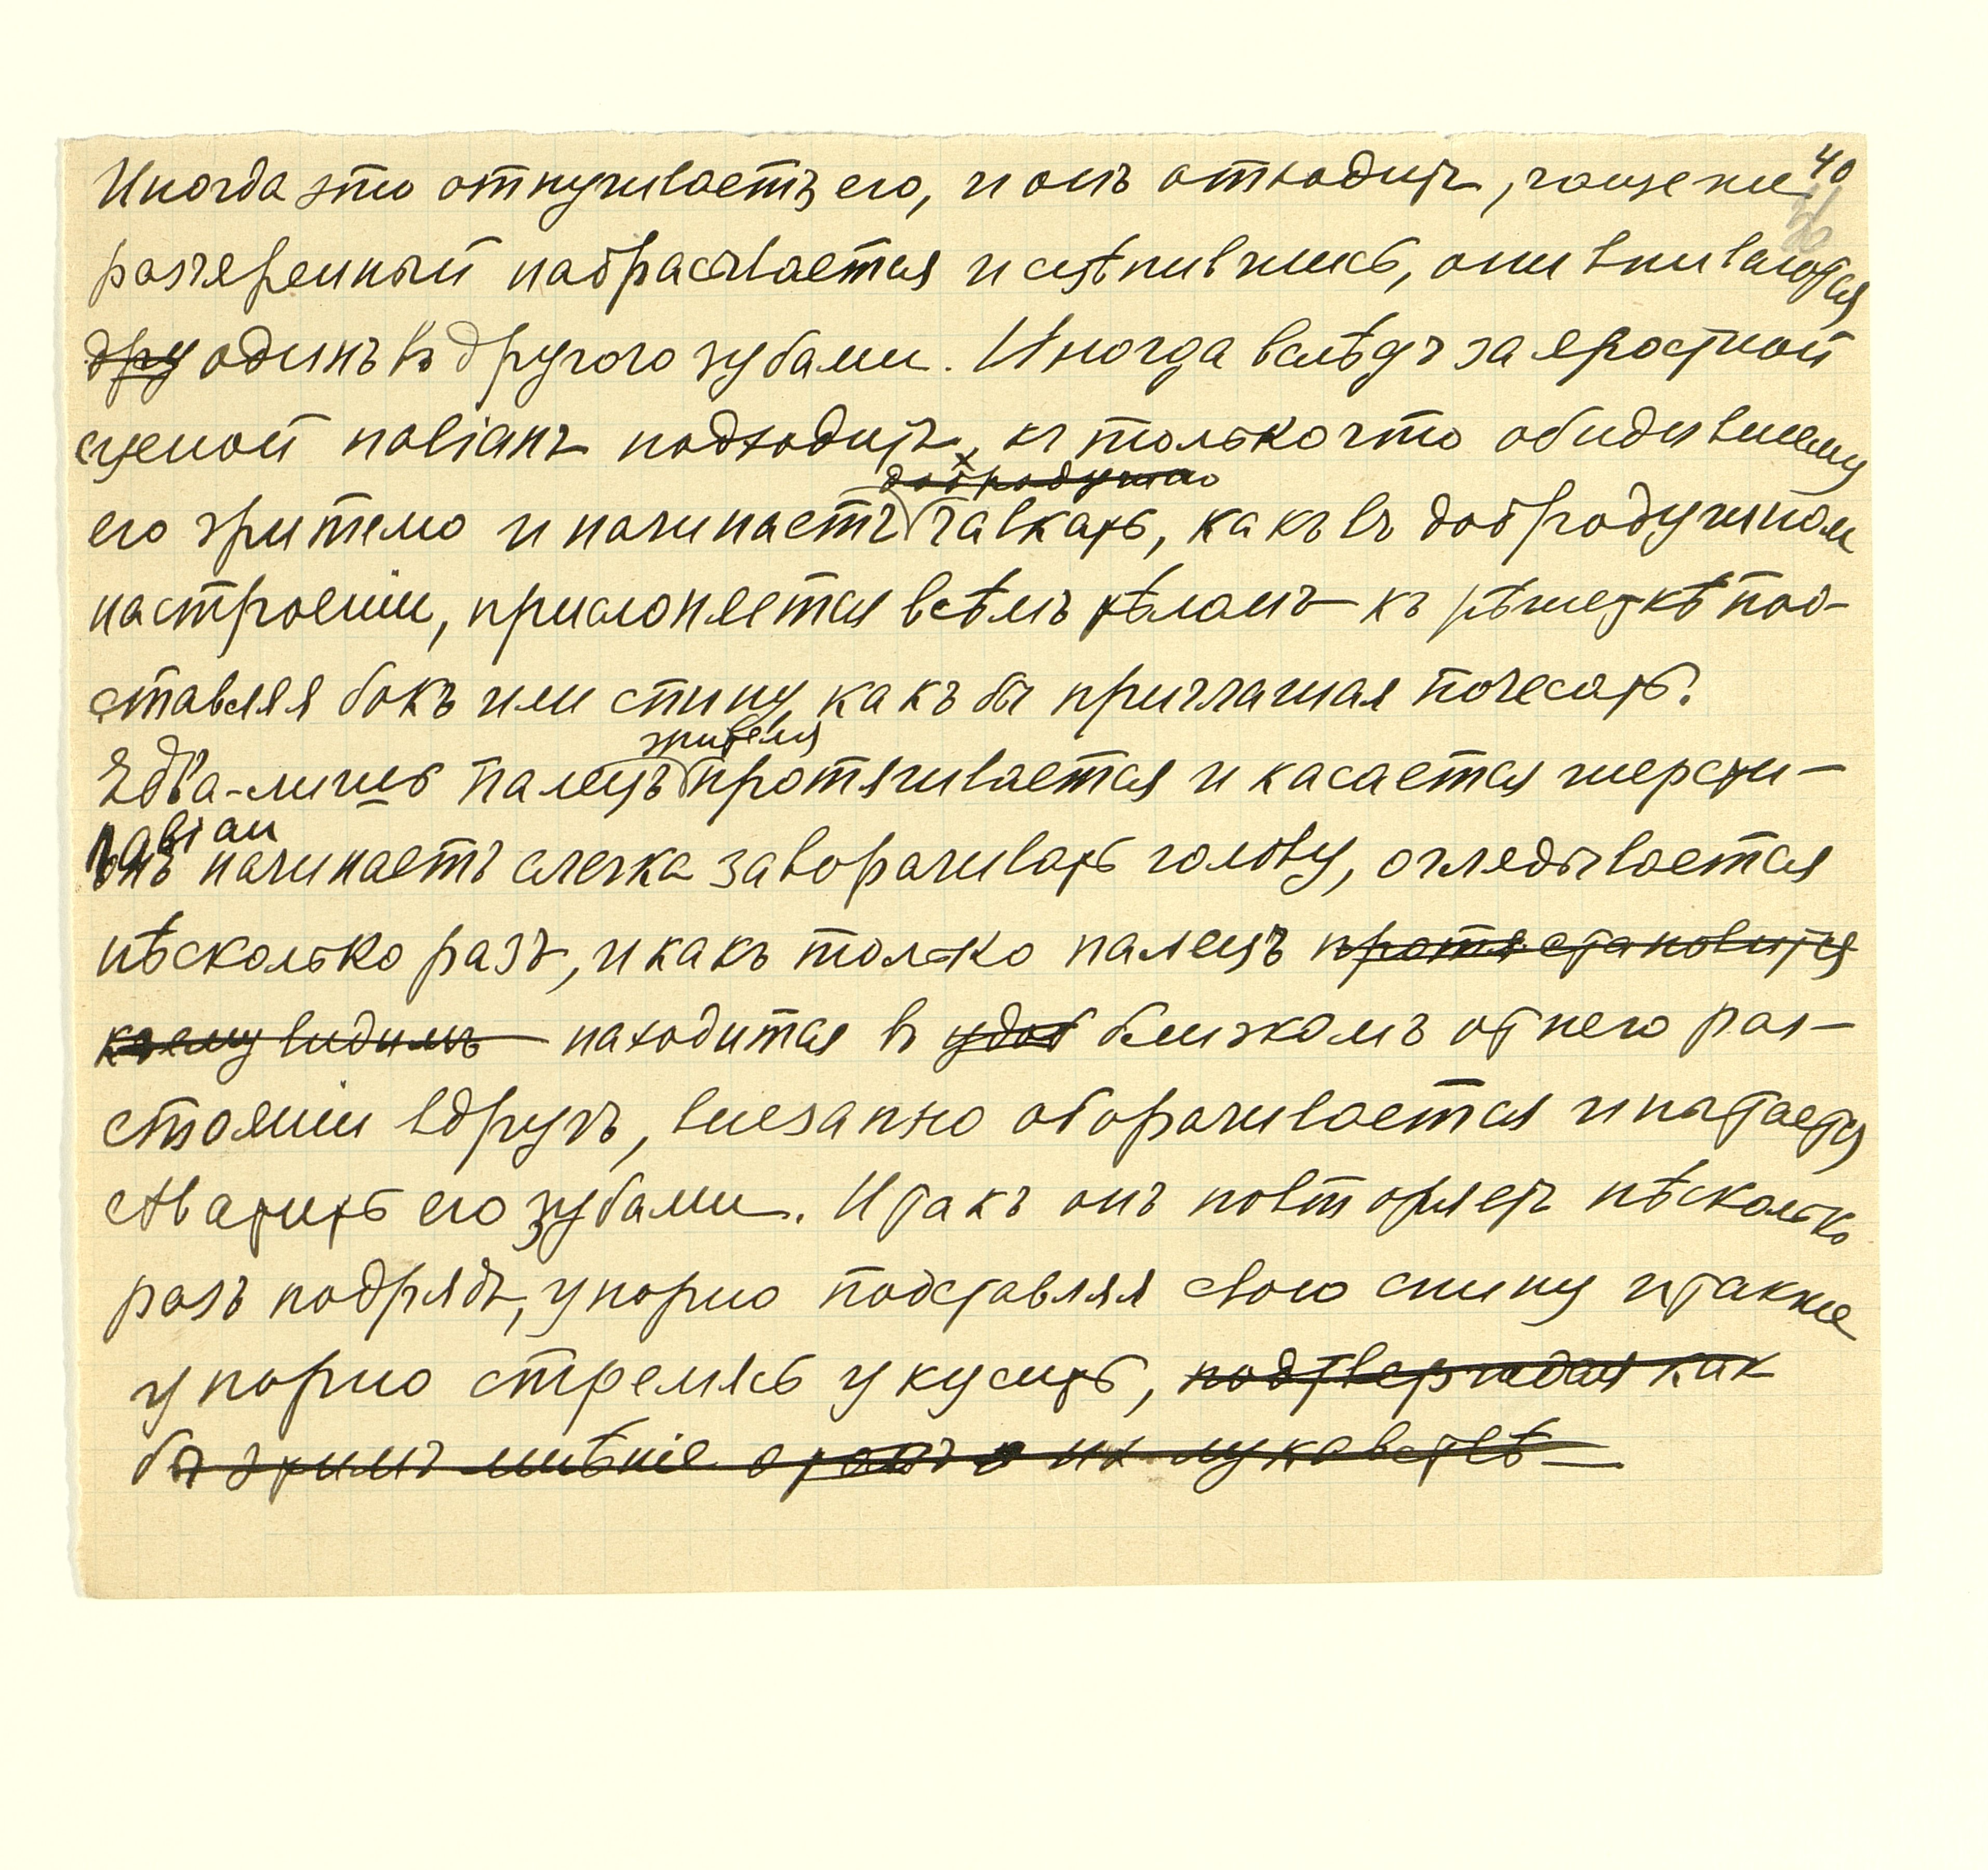 40
Иногда это отпугиваетъ его, и онъ отходитъ, чаще же
разъяренный набрасывается и сцѣпившись, они впиваются
дру одинъ въ другого зубами. Иногда вслѣдъ за яростной
сценой павіанъ подходитъ, къ только что обидѣвшему
добродушно
его зрителю и начинаетъ чавкать, какъ въ добродушном
настроеніи, прислоняется всѣмъ тѣломъ къ рѣшеткѣ под-
ставляя бокъ или спину, какъ бы приглашая почесать.
зрителя
Едва-лишь палецъ протягивается и касается шерсти -
павіан
онъ начинаетъ слегка заворачивать голову, оглядывается
нѣсколько разъ, и какъ только палецъ протя становится
къ ему видимъ находится въ удоб близкомъ от него раз-
стояніи вдругъ, внезапно оборачивается и пытается
схватить его зубами. И такъ онъ повторяетъ нѣсколько
разъ подрядъ, упорно подставляя свою спину и также
упорно стремясь укусить, подтверждая как
бы этимъ мнѣніе о их лукавствѣ